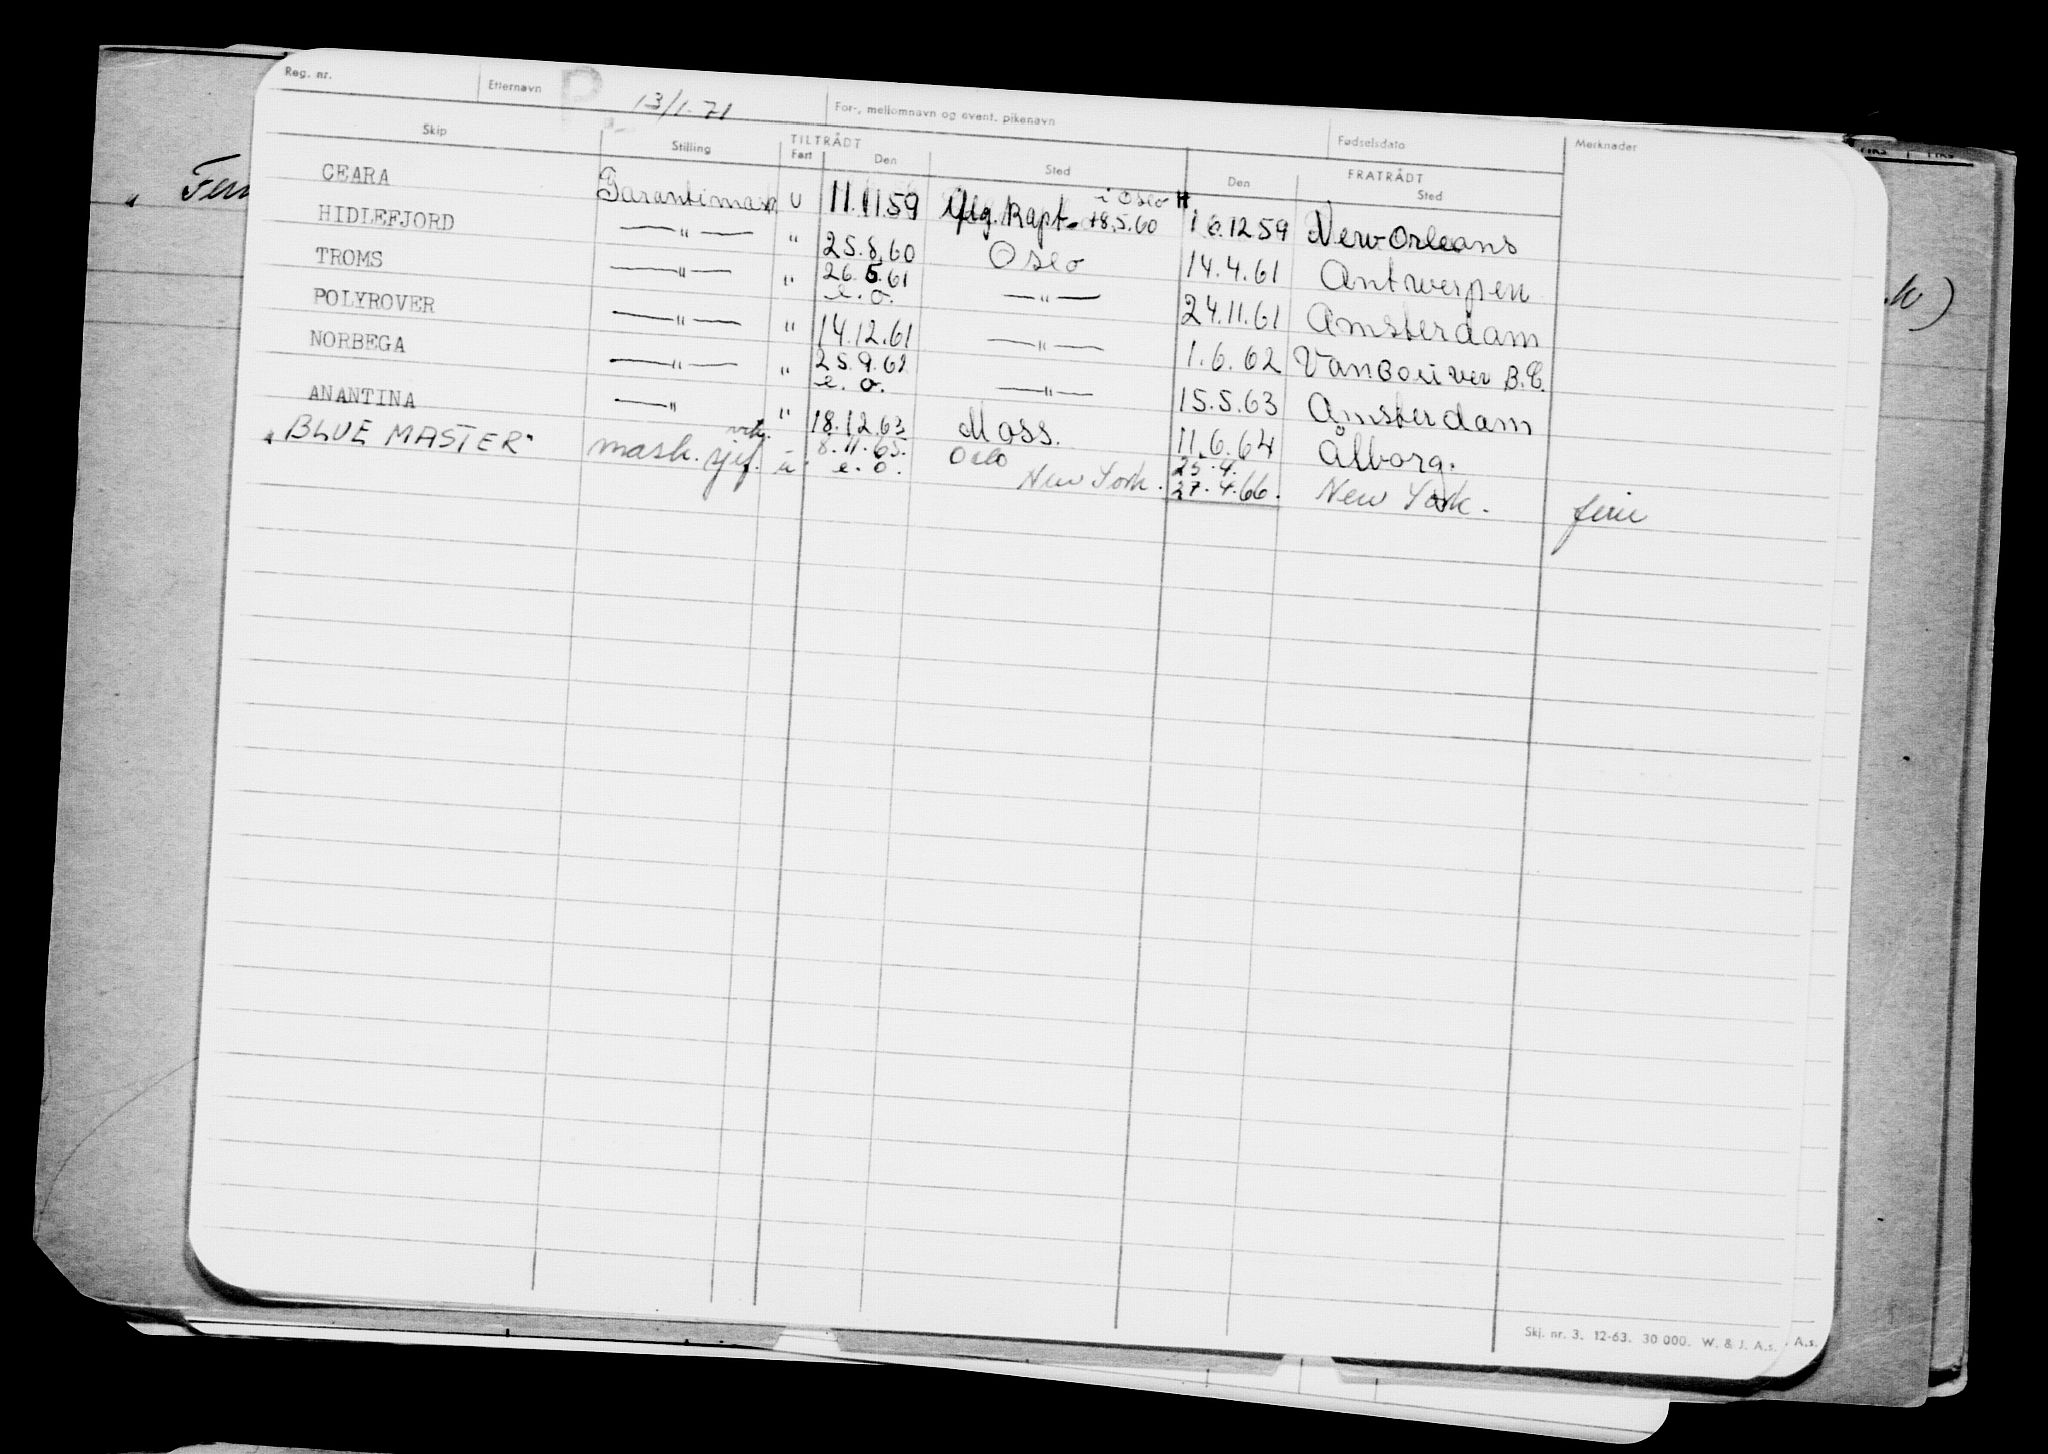 Reg. nr. Etternavn P 13/1-71 For-, mellomnavn og event. pikenavn Fødselsdato Merknader
Skip Stilling TILTRÅDT Fart Den Sted FRATRÅDT Den Sted
CEARA Garantimask U 11.11.59 Ufg. Kapt. 18.5.60 i Oslo H 16.12.59 New-Orleans
HIDLEFJORD —"— " 25.8.60 Oslo 14.4.61 Antwerpen
TROMS —"— " 26.5.61 e.o. —"— 24.11.61 Amsterdam
POLYROVER —"— " 14.12.61 —"— 1.6.62 Vancouver B.C.
NORBEGA —"— " 25.9.62 e.o. —"— 15.5.63 Amsterdam
ANANTINA —" " 18.12.63 Moss. 11.6.64 Ålborg.
"BLUE MASTER" mask. sjef. u 8.11.65. e.o. Oslo New York. 25.4. 27.4.66. New York. ferie
Skj. nr. 3. 12-63. 30 000. W. & J. A.s. A.s.